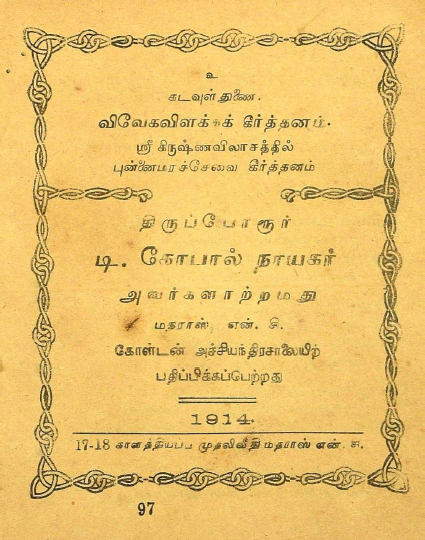 உ
கடவுள் துணை.
விவேகவிளக்கக் கீர்த்தனம்.
ஸ்ரீ கிருஷ்ணவிலாசத்தில்
புன்னைமரச்சேவை கீர்த்தனம்
திருப்போரூர்
டி. கோபால் நாயகர்
அவர்களாற்றமது
மதராஸ், என். சி.
கோள்டன் அச்சியந்திரசாலையிற்
பதிப்பிக்கப்பெற்றது
1914
17-18 காளத்தியப்ப முதலிவீதி மதராஸ் என். சி.
97